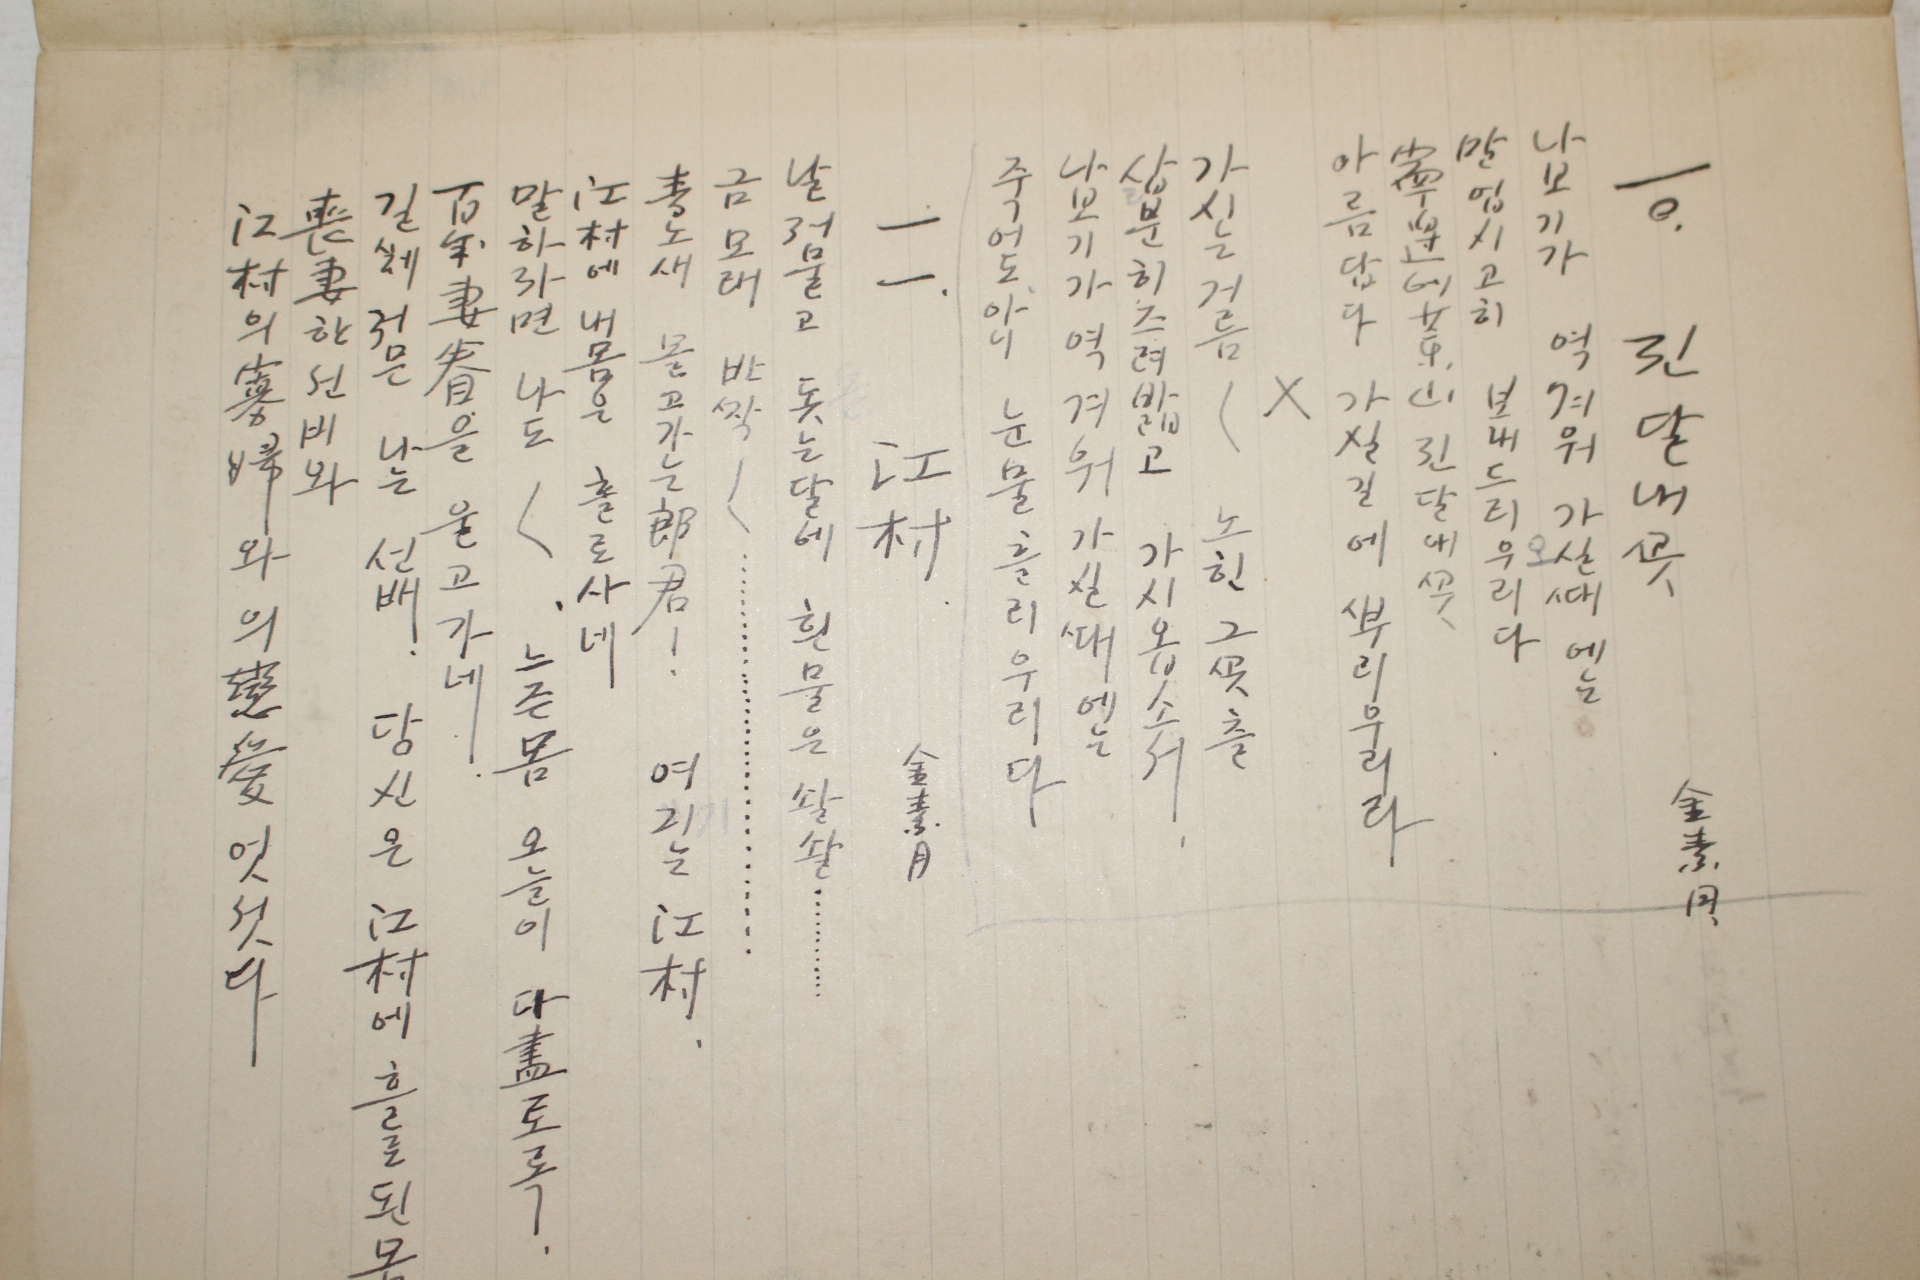 一〇. 진달내꼿 金素月
나보기가 역겨워 가실때에는
말업시고히 보내드리우리다
寧邊에藥山 진달내꼿
아름답다 가실길에 뿌리우리라
×
가시는거름〱 노힌 그꼿츨
삽분히즈려밟고 가시옵소서.
나보기가 역겨워 가실때에는
죽어도아니 눈물흘리우리다
一一. 江村 金素月
날점물고 돗는달에 흰물은 솰솰………
금모래 반짝〱…………………
靑노새 몰고가는郎君! 여긔는 江村.
江村에내몸은 홀로사네
말하라면 나도〱. 느즌봄 오늘이 다盡토록.
百年妻眷을 울고가네.
길쎄 점믄 나는 선배! 당신은 江村에 흘률된몸
喪妻한선비와
江村의寡婦와의戀愛엿섯다